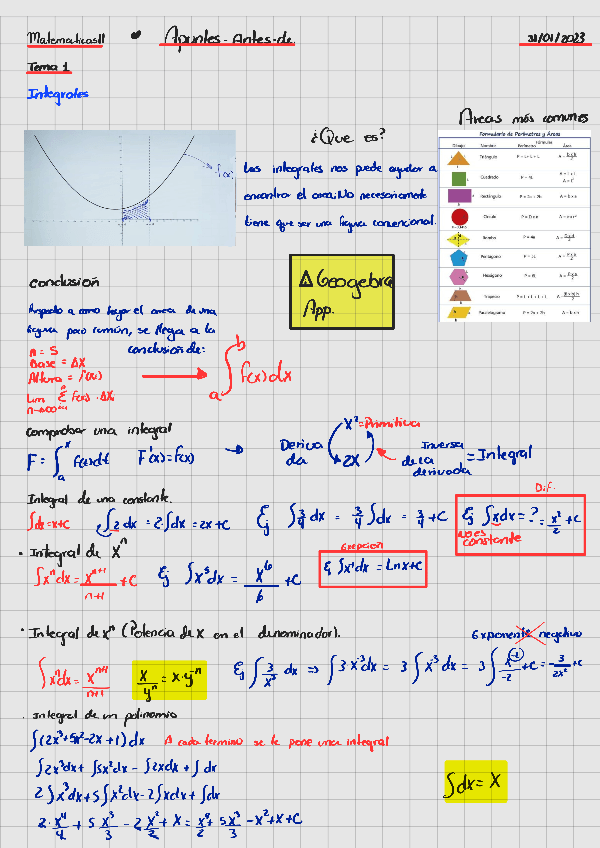 Matematicas II
Apuntes - Antes-de
31/01/2023
Tema 1
Integrales
Areas más comunes
¿Que es?
Las integrales nos puede ayudar a
encontrar el area. No necesariamente
tiene que ser una figura convencional.
f(x)
Formulario de Perímetros y Áreas
Fórmulas
Dibujo Nombre Perímetro Área
Triángulo
Cuadrado P = 4L
Rectángulo
Círculo
Rombo
Pentágono
Hexágono
Trapecio
Paralelogramo
Geogebra
App.
conclusión
figura poco común, se llega a la
conclusión de:
n = 5
Base = ΔX
Altura = f(x)
Lim Σ F(x) · ΔX
n→∞
∫ₐᵇ f(x)dx
Comprobar una integral
F = ∫ₐˣ f(t)dt F'(x) = f(x) →
Deriva
da
x² = Primitiva
2X
Inversa
de la
derivada
= Integral
Integral de una constante.
∫dx = x+c ∫2dx = 2∫dx = 2x+C Ej ∫3/4 dx = 3/4 ∫dx = 3/4 + C
Dif.
Ej ∫xdx = ? = x²/2 + c
No es
constante
• Integral de Xⁿ
∫xⁿdx = xⁿ⁺¹/n+1 + C Ej ∫x⁵dx = x⁶/6 + C
Exepcion
Ej ∫x¹dx = Lnx+c
• Integral de xⁿ (Potencia de X en el denominador).
Exponente negativo
∫xⁿdx = xⁿ⁺¹/n+1
x/yⁿ = x·y⁻ⁿ
Ej ∫3/x³ dx ⇒ ∫3·x⁻³dx = 3∫x⁻³dx = 3∫x⁻²/-2 + C = -3/2x² + c
· Integral de un polinomio
∫(2x³+5x²-2x+1)dx A cada termino se le pone una integral
∫2x³dx + ∫5x²dx - ∫2xdx + ∫dx
2∫x³dx + 5∫x²dx - 2∫xdx + ∫dx
2·x⁴/4 + 5x³/3 - 2x²/2 + x = x⁴/2 + 5x³/3 - x² + x + c
∫dx = X